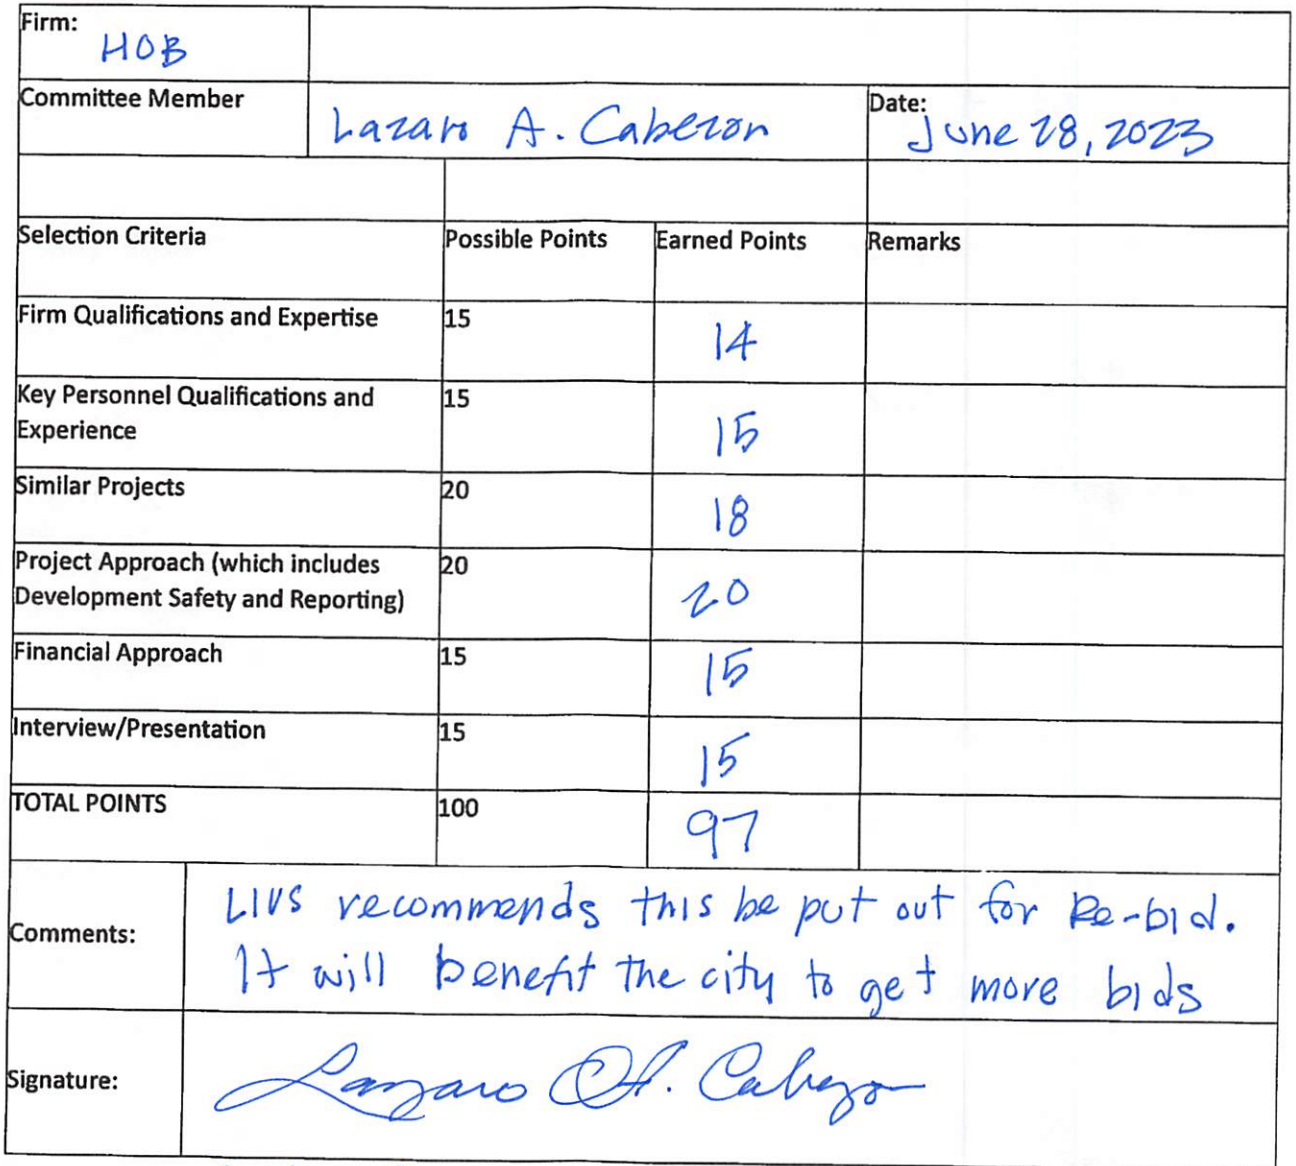 Firm:
HOB
Committee Member
Lazaro A. Cabezon
Date:
June 28, 2023
Selection Criteria Possible Points Earned Points Remarks
Firm Qualifications and Expertise 15 14
Key Personnel Qualifications and
Experience 15 15
Similar Projects 20 18
Project Approach (which includes
Development Safety and Reporting) 20 20
Financial Approach 15 15
Interview/Presentation 15 15
TOTAL POINTS 100 97
Comments:
LIVS recommends this be put out for Re-bid.
It will benefit the city to get more bids
Signature:
Lazaro A. Cabezon